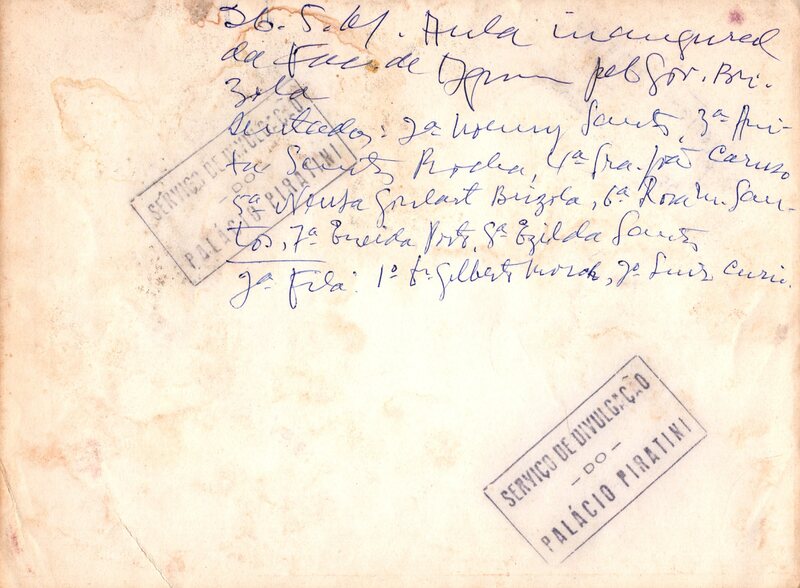 26.5.61. Aula inaugural
da Fac. de Agron pelo Gov. Bri-
zola
Sentados: 2ª Noemy Santos, 3ª Ani-
ta Santos Rocha, 4ª Sra. Caruso
5ª Neusa Goulart Brizola, 6ª Rosa M. San-
tos, 7ª Eneida Porto, 8ª Ezilda Santos
2ª Fila: 1º Gilberto 2º Luiz
SERVIÇO DE DIVULGAÇÃO
- DO -
PALÁCIO PIRATINI
SERVIÇO DE DIVULGAÇÃO
- DO -
PALÁCIO PIRATINI